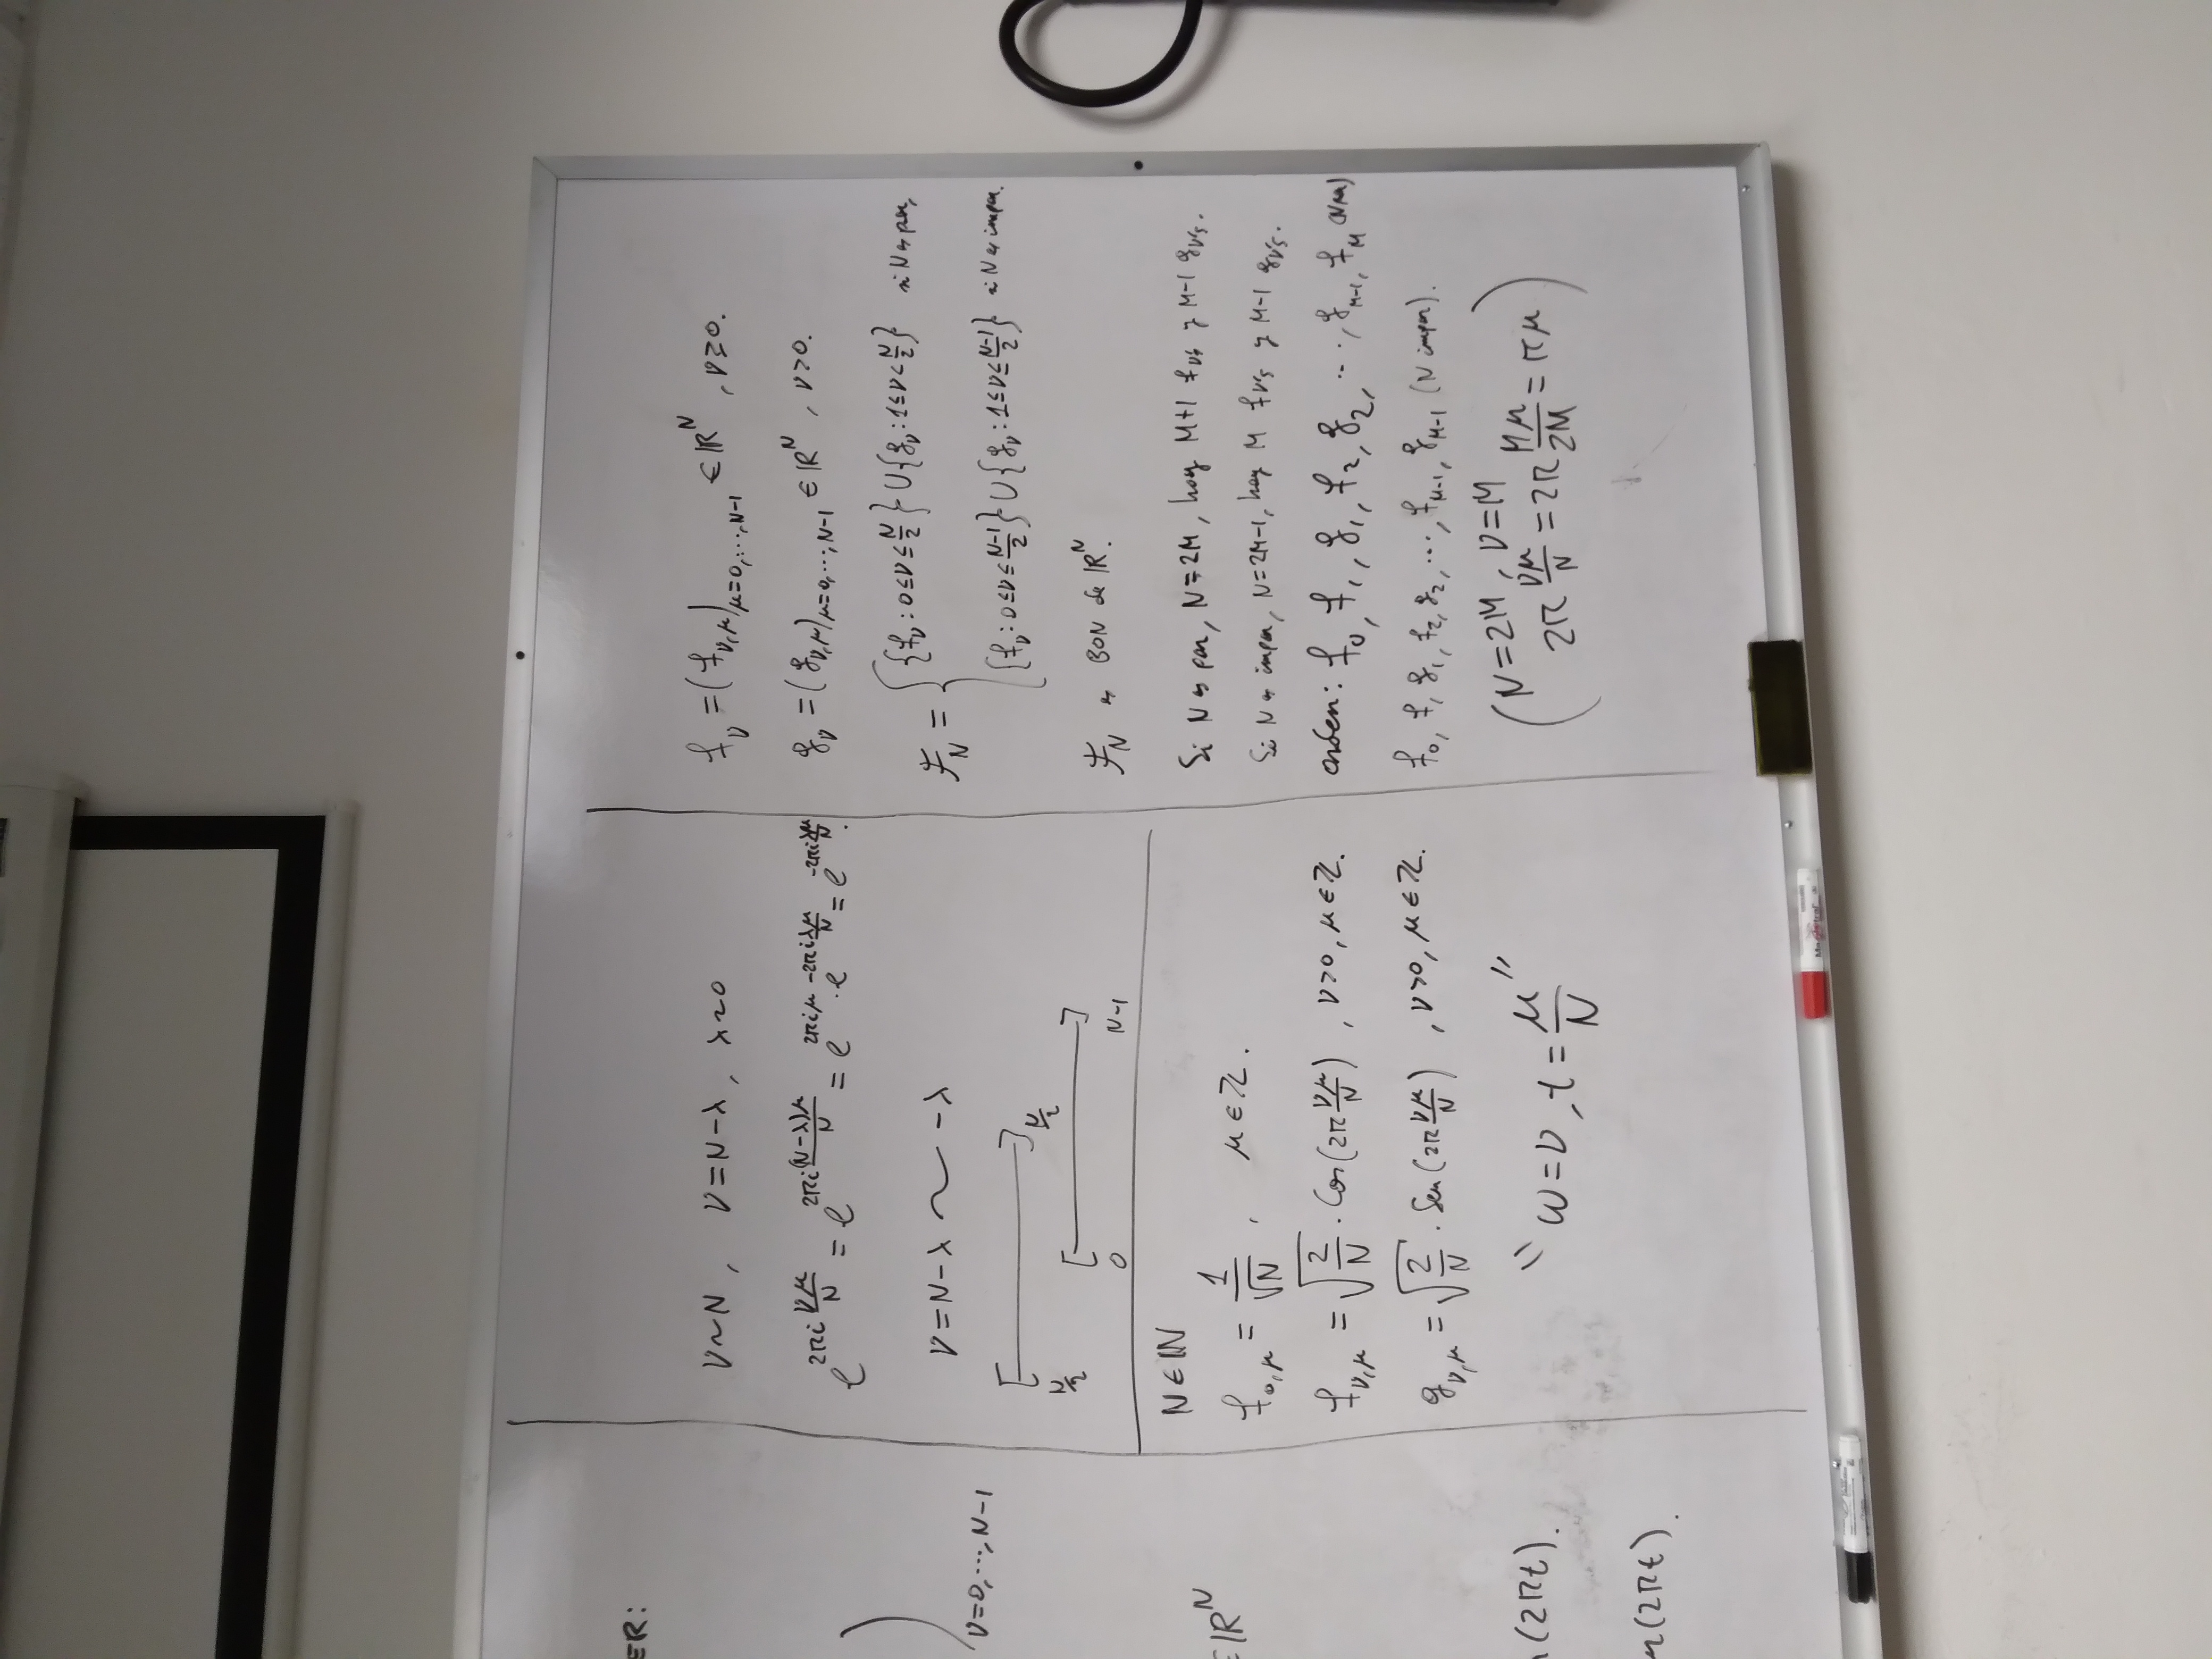 ER:
)ν=0,⋯,N-1
∈ℝ^N
(2πt).
(2πt).
ν∼N, ν=N-λ, λ∼0
e^{2πi νμ/N} = e^{2πi (N-λ)μ/N} = e^{2πiμ}·e^{-2πi λμ/N} = e^{-2πi λμ/N}.
ν=N-λ ∼ -λ
[ ]
N/2 N/2
[ ]
0 N-1
N∈ℕ
f_{0,μ} = 1/√N, μ∈ℤ.
f_{ν,μ} = √(2/N)·Cos(2π νμ/N), ν>0, μ∈ℤ.
g_{ν,μ} = √(2/N)·Sen(2π νμ/N), ν>0, μ∈ℤ.
"ω=ν, t=μ/N"
f_ν = (f_{ν,μ})_{μ=0,⋯,N-1} ∈ℝ^N, ν≥0.
g_ν = (g_{ν,μ})_{μ=0,⋯,N-1} ∈ℝ^N, ν>0.
ℱ_N = { {f_ν : 0≤ν≤N/2} ∪ {g_ν : 1≤ν<N/2} si N es par,
{f_ν : 0≤ν≤(N-1)/2} ∪ {g_ν : 1≤ν≤(N-1)/2} si N es impar.
ℱ_N es BON de ℝ^N.
Si N es par, N=2M, hay M+1 f_ν's y M-1 g_ν's.
Si N es impar, N=2M-1, hay M f_ν's y M-1 g_ν's.
orden: f_0, f_1, g_1, f_2, g_2, ⋯, g_{M-1}, f_M (N par)
f_0, f, g_1, f_2, g_2, ⋯, f_{M-1}, g_{M-1} (N impar).
(N=2M, ν=M
2π νμ/N = 2π Mμ/2M = πμ)